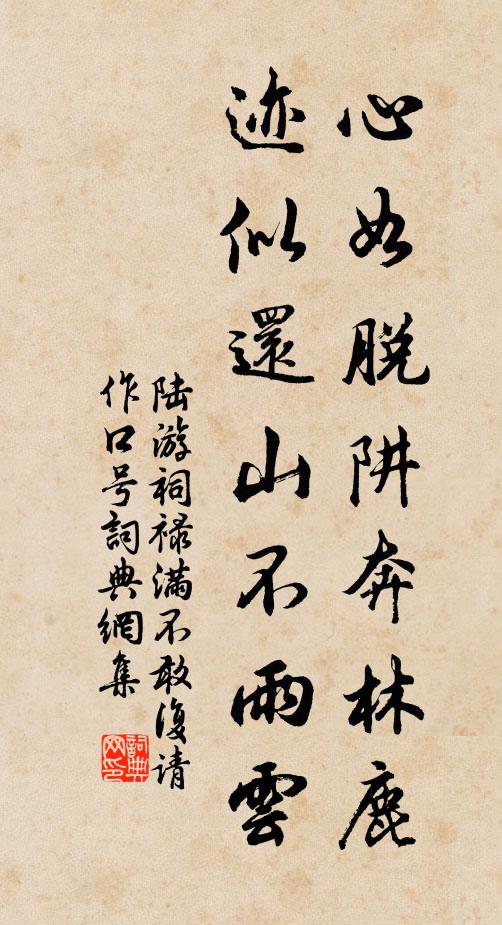 心如脱阱奔林鹿
迹似還山不雨雲
陆游祠禄满不敢復请
作口号詞典網集
詞典网印